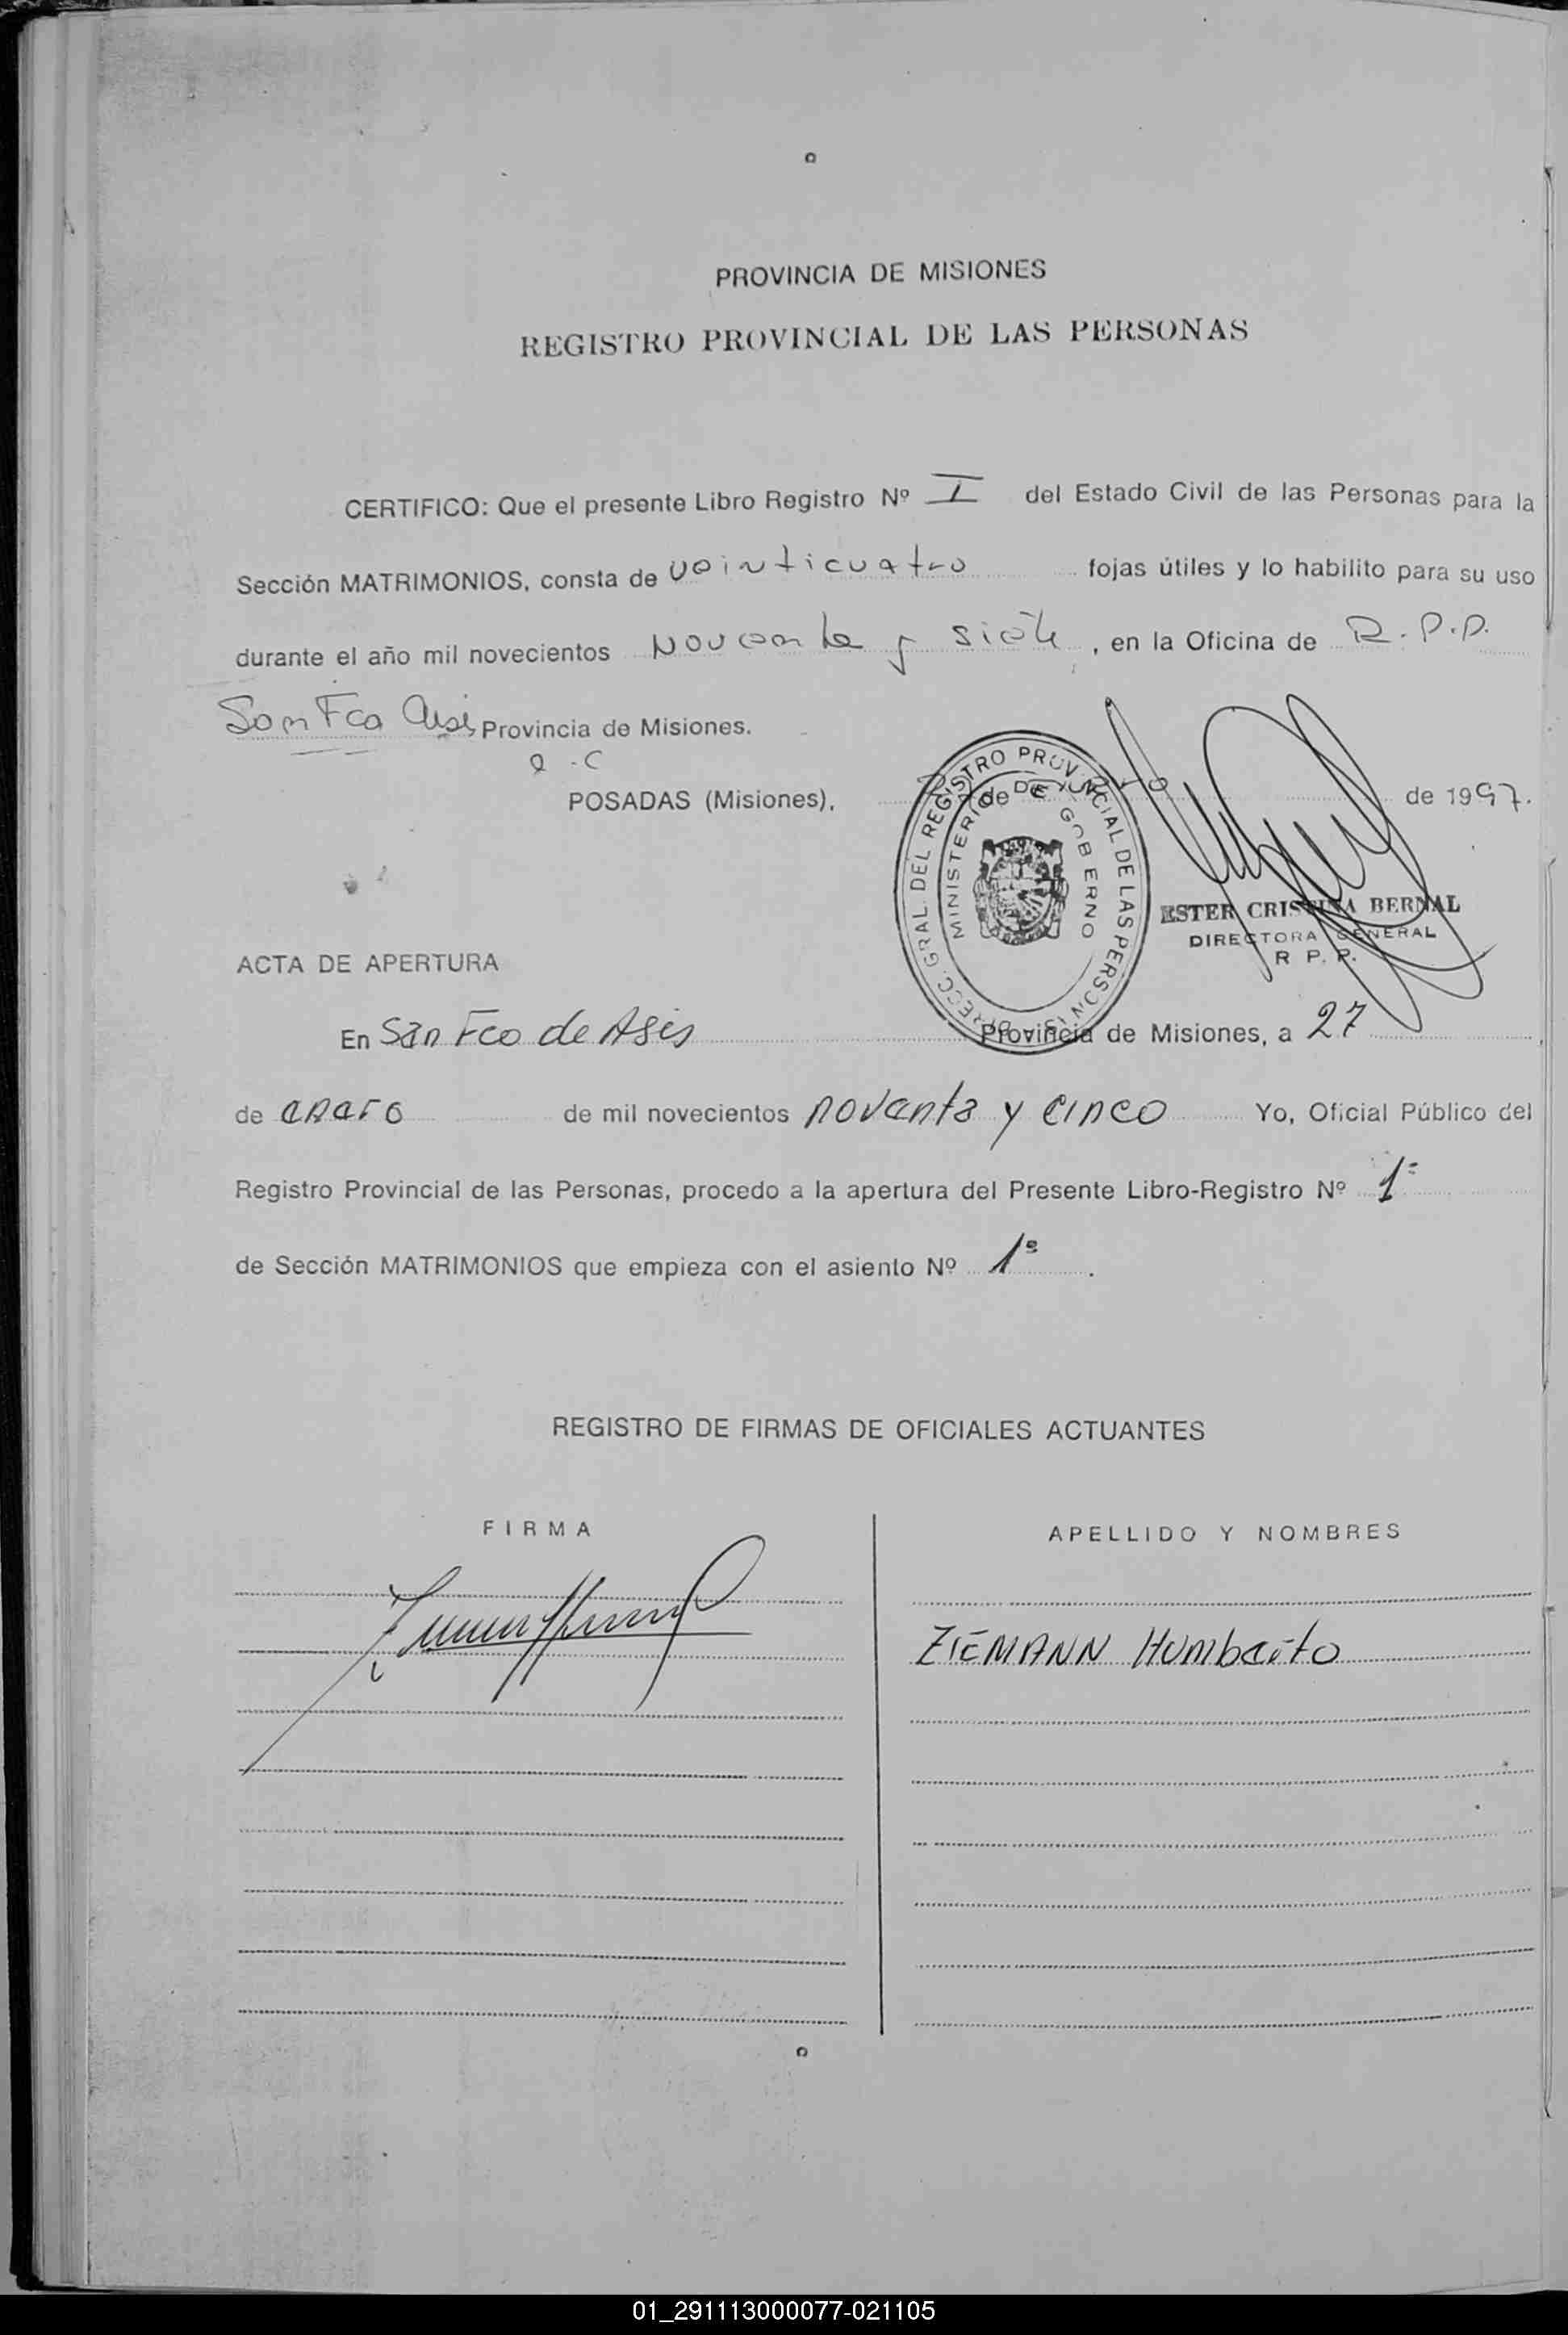 PROVINCIA DE MISIONES
REGISTRO PROVINCIAL DE LAS PERSONAS
CERTIFICO: Que el presente Libro Registro Nº I del Estado Civil de las Personas para la
Sección MATRIMONIOS, consta de veinticuatro fojas útiles y lo habilito para su uso
durante el año mil novecientos noventa y siete, en la Oficina de R.P.P.
San Fco Asis Provincia de Misiones.
POSADAS (Misiones), de de 1997.
DIRECC. GRAL. DEL REGISTRO PROVINCIAL DE LAS PERSONAS
MINISTERIO DE GOBIERNO
ESTER CRISTINA BERNAL
DIRECTORA GENERAL
R P. P.
ACTA DE APERTURA
En San Fco de Asis Provincia de Misiones, a 27
de enero de mil novecientos noventa y cinco Yo, Oficial Público del
Registro Provincial de las Personas, procedo a la apertura del Presente Libro-Registro Nº 1º
de Sección MATRIMONIOS que empieza con el asiento Nº 1º.
REGISTRO DE FIRMAS DE OFICIALES ACTUANTES
FIRMA APELLIDO Y NOMBRES
ZIEMANN Humberto
01_291113000077-021105